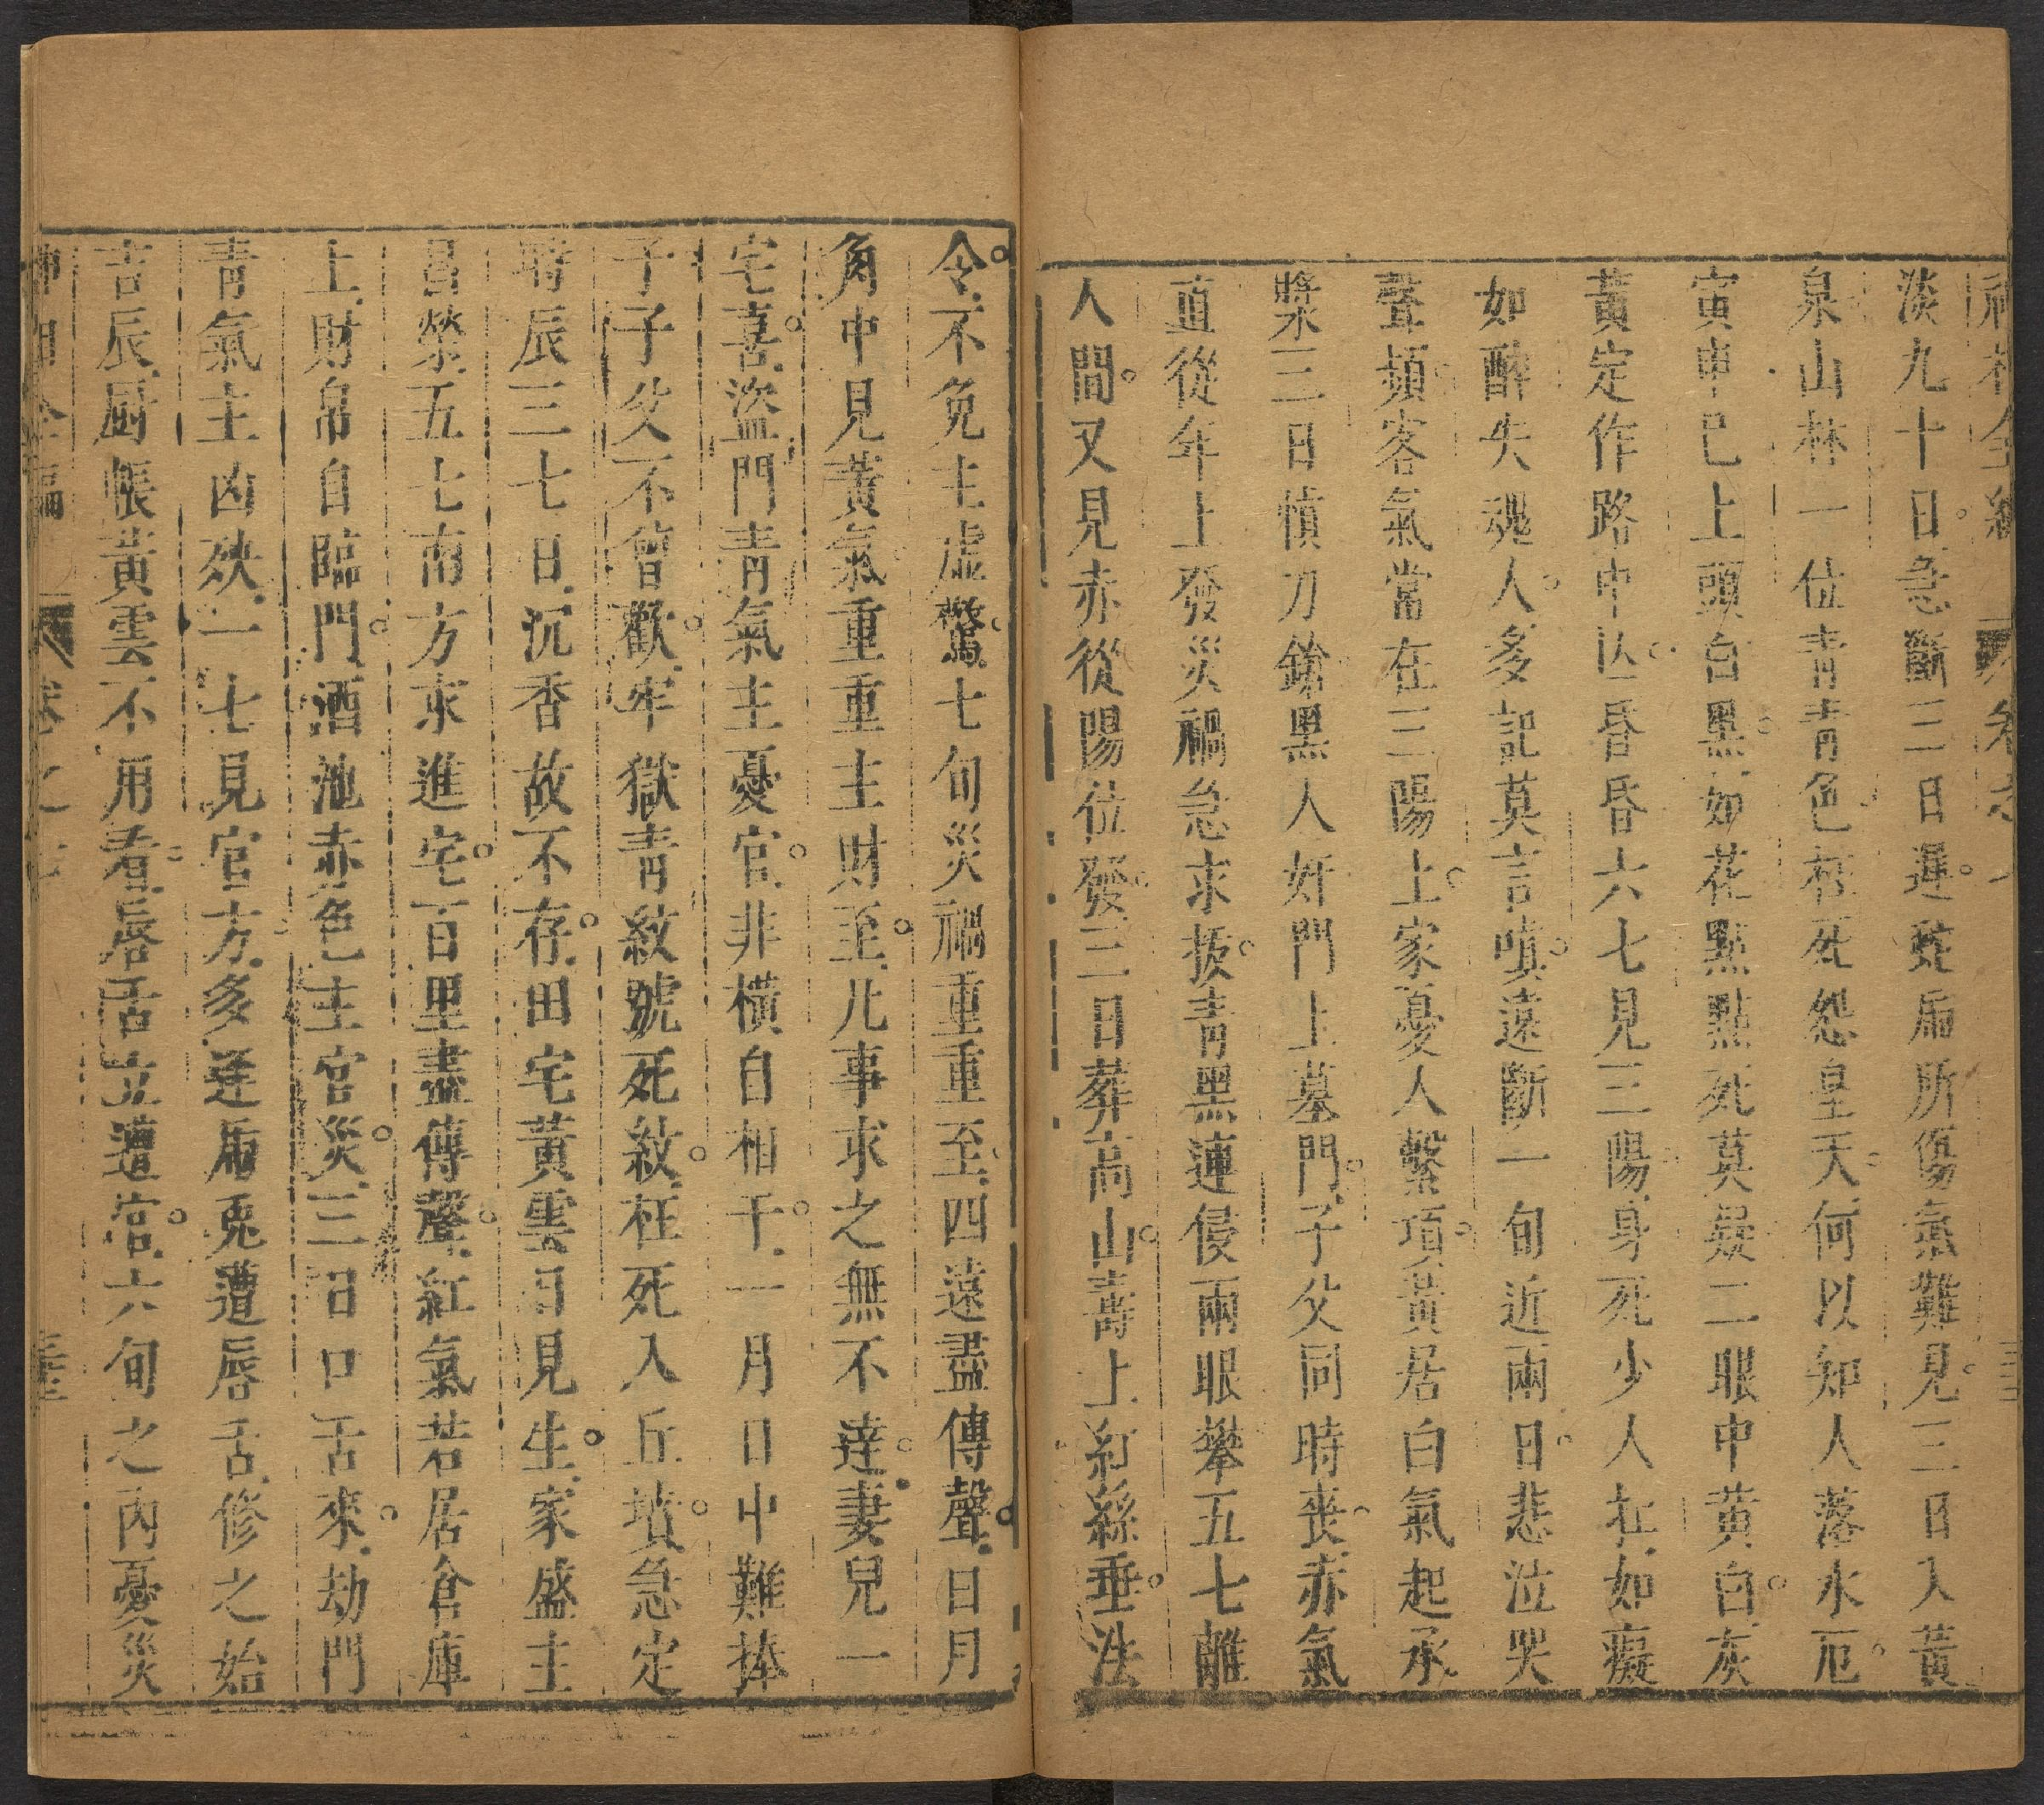 淡九十日急斷三日遲蛇虎所傷氣難見三日入黃
泉山林一位青青色枉死怨皇天何以知人落水厄
寅申巳上頭白黑如花點點死莫疑二眼中黃白灰
黃定作路中亾昏昏六七見三陽身死少人扛如癡
如醉失魂人多記莫言嗔遠斷一旬近兩日悲泣哭
聲頻客氣當在三陽上家憂人繫項黃居白氣起承
漿三日慎刀鎗黑人奸門上墓門子父同時喪赤氣
直從年上發災禍急求拔青黑連侵兩眼攀五七離
人間又見赤從陽位發三日葬高山壽上紅絲垂法
令不免主虛驚七旬災禍重重至四遠盡傳聲日月
角中見黃氣重重主財至凡事求之無不達妻兒一
宅喜盜門青氣主憂官非橫自相干一月日中難捧
子子父不曾歡牢獄青紋號死紋枉死入丘墳急定
時辰三七日沉香故不存田宅黃雲日見生家盛主
昌榮五七南方求進宅百里盡傳聲紅氣若居倉庫
上財帛自臨門酒池赤色主官災三日口舌來劫門
青氣主凶殃一七見官方多逢虎兎遭唇舌修之始
吉辰厨帳黃雲不用看唇舌立遭官六旬之內憂災